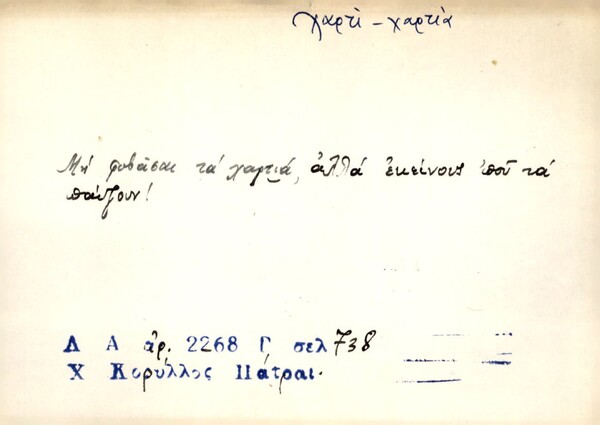 χαρτὶ - χαρτιὰ
Μὴ φοβᾶσαι τά χαρτιά, ἀλλά ἐκείνους ποὔ τά
παίζουν!
Λ Α ἀρ. 2268 Γ σελ 738
Χ Κορύλλος Πάτραι.